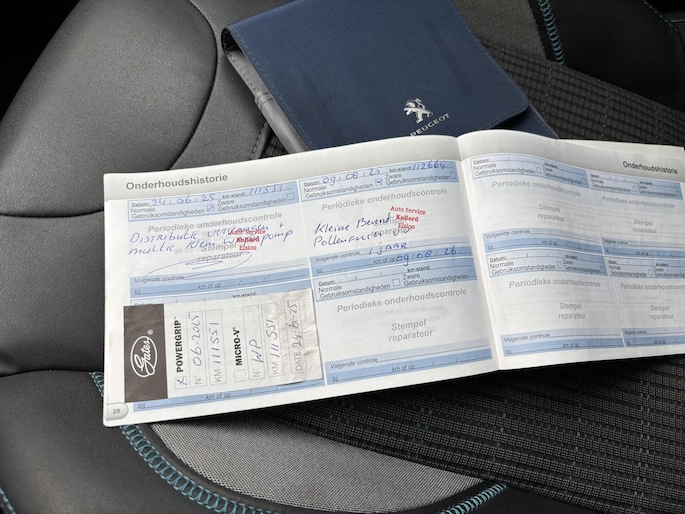 PEUGEOT
Onderhoudshistorie
Datum: 24.06.25 km-stand: 111551
Normale Gebruiksomstandigheden
Zware Gebruiksomstandigheden
Periodieke onderhoudscontrole
Distributie vervangen +
multie riem waterpomp
Auto Service
Kollard
Elsloo
Stempel
reparateur
Volgende controle
bij km of op
Gates
POWERGRIP
N° 06-2025
KM 111551
MICRO-V
N° WP
KM 111551
DATE 24-6-25
bij km of op
28
Datum: 09.08.25 km-stand: 112664
Normale Gebruiksomstandigheden
Zware Gebruiksomstandigheden
Periodieke onderhoudscontrole
Kleine Beurt
Pollenfilter
Auto Service
Kollard
Elsloo
Volgende controle 1 jaar
bij km of op 09.08.26
Datum: km-stand:
Normale Gebruiksomstandigheden
Zware Gebruiksomstandigheden
Periodieke onderhoudscontrole
Stempel
reparateur
Volgende controle
bij km of op
Onderhoudshistorie
Datum: km-stand:
Normale Gebruiksomstandigheden
Zware Gebruiksomstandigheden
Periodieke onderhoudscontrole
Stempel
reparateur
Volgende controle
bij km of op
Datum: km-stand:
Normale Gebruiksomstandigheden
Zware Gebruiksomstandigheden
Periodieke onderhoudscontrole
Stempel
reparateur
Volgende controle
bij km of op